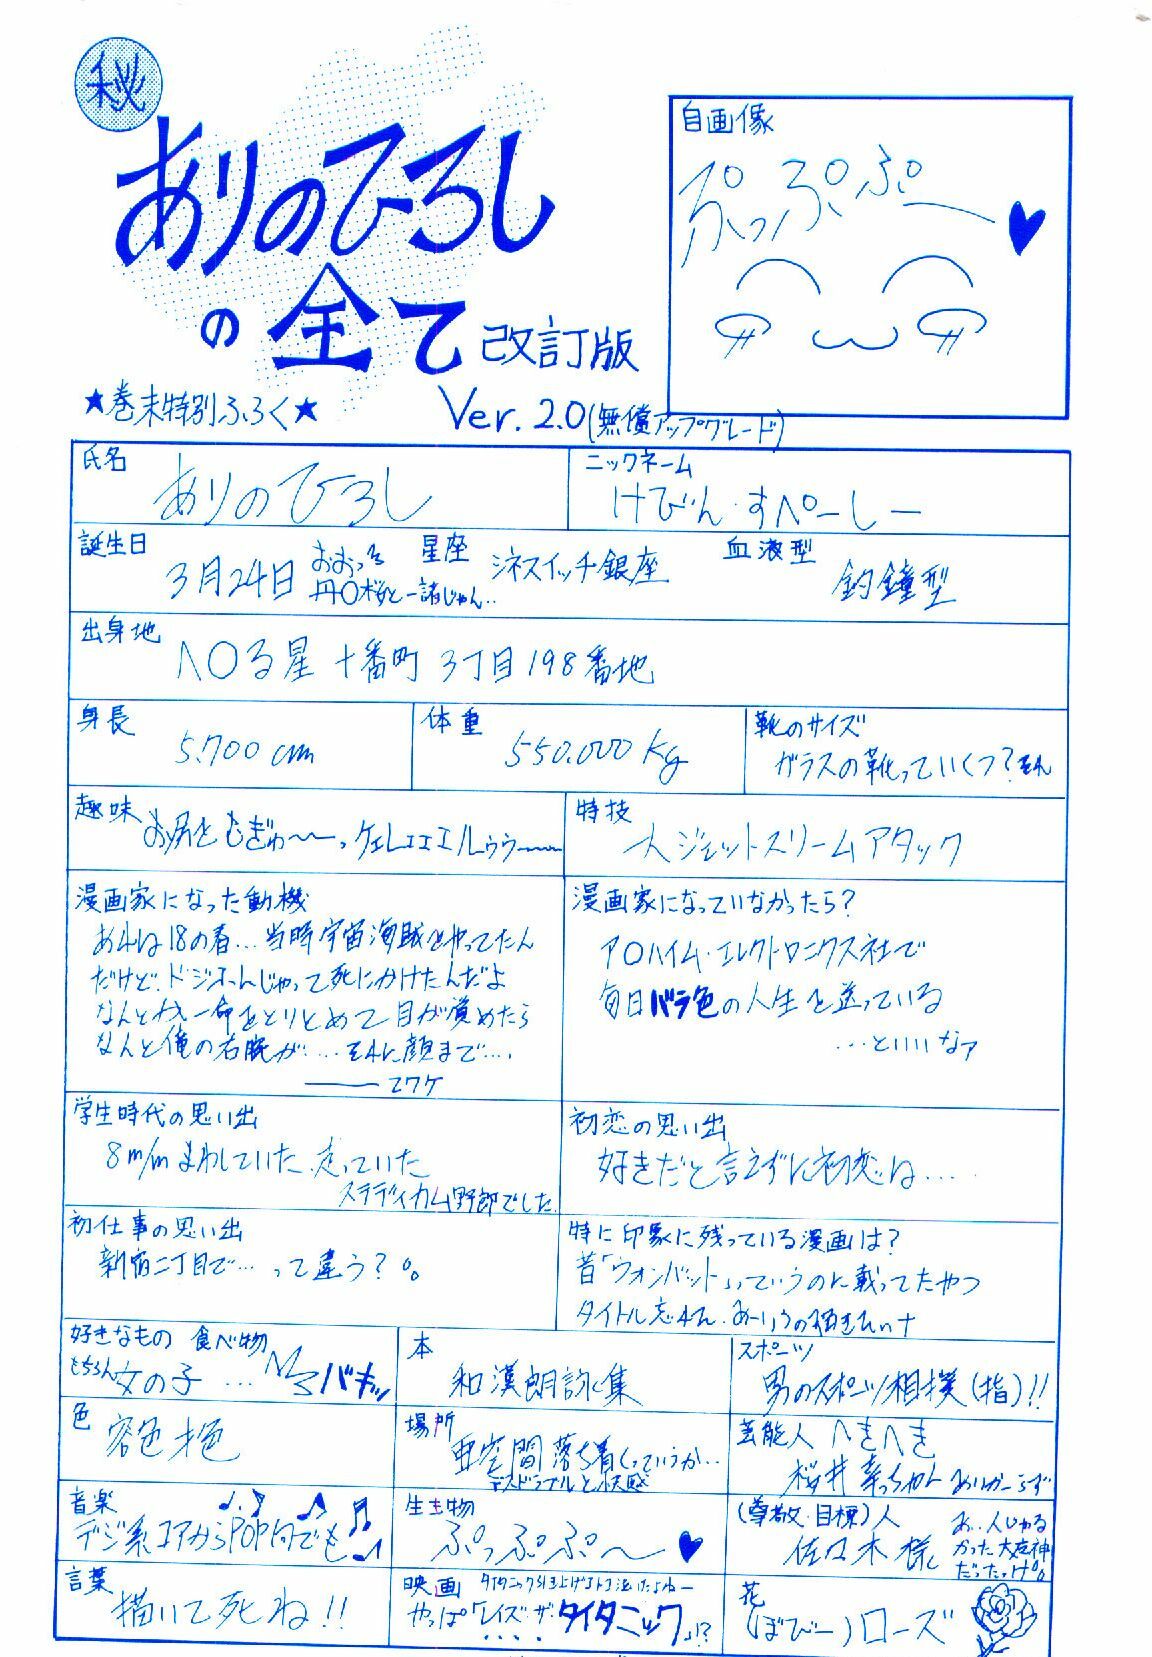 秘
ありのひろし
の全て 改訂版
★巻末特別ふろく★
Ver. 2.0 (無償アップグレード)
自画像
ぷっぷぷぷー
氏名
ありのひろし
ニックネーム
けびん・すぺーしー
誕生日
3月24日
おおっる
丹〇桜と一諸じゃん..
星座
シネスイッチ銀座
血液型
釣鐘型
出身地
ハ〇る星 十番町 3丁目198番地
身長
5.700cm
体重
550.000kg
靴のサイズ
ガラスの靴っていくつ?
趣味
お尻ともぎゅ〜〜っ、ケェレェェエルゥゥ〜〜
特技
一人ジェットストリームアタック
漫画家になった動機
あれは18の春…当時宇宙海賊をやってたん
だけど、ドジふんじゃって死にかけたんだよ
なんとか一命をとりとめて目が覚めたら
なんと俺の右腕が……それに顔まで….
コワケ
漫画家になっていなかったら?
ア〇ハイム・エレクトロニクス社で
毎日バラ色の人生を送っている
…といいなァ
学生時代の思い出
8m/mまわしていた、走っていた
ステディカム野郎でした
初恋の思い出
好きだと言えずに初恋は….
初仕事の思い出
新宿二丁目で…って違う?
特に印象に残っている漫画は?
昔「ウォンバット」っていうのに載ってたやつ
タイトル忘れた.
好きなもの 食べ物
もちろん女の子…
バキッ
本
和漢朗詠集
スポーツ
男のスポーツ相撲(指)!!
色
容色才色
場所
亜空間 落ち着くっていうか…
デスドライブルと快感
芸能人
へきへき
桜井幸っちゃん
音楽
デジ系コアからPOP何でも
生き物
ぷっぷぷぷ〜
(尊敬・目標)人
佐々木様
言葉
描いて死ね!!
映画
やっぱ「レイズ・ザ・タイタニック」!?
花
(ぼびー)ローズ